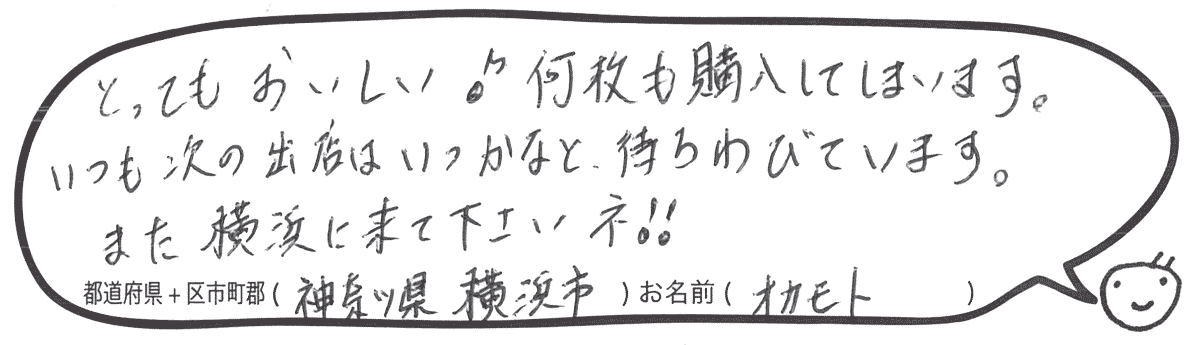 とってもおいしい♪何枚も購入してしまいます。
いつも次の出店はいつかなと、待ちわびています。
また横浜に来て下さいネ!!
都道府県+区市町郡(神奈ッ県 横浜市)お名前(オカモト)